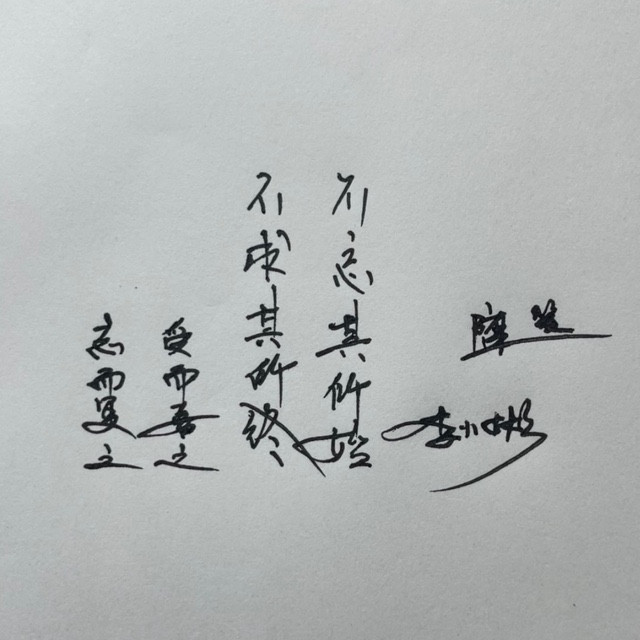 不忘其所始
不求其所终
受而喜之
忘而复之